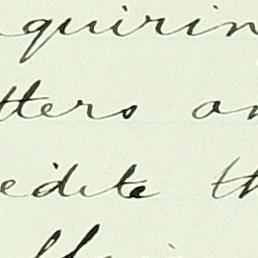 quirin
tters on
edite th